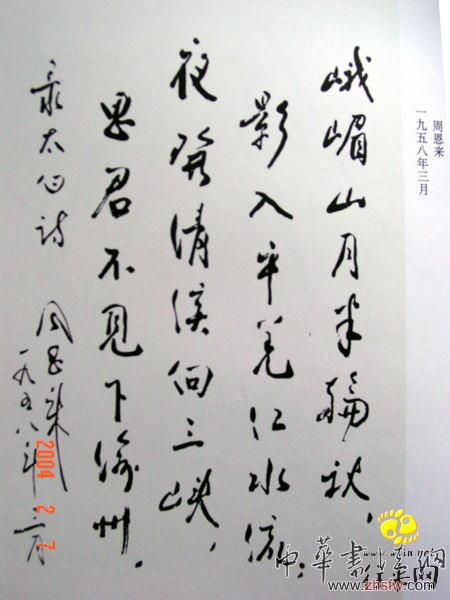 周恩来
一九五八年三月
峨嵋山月半輪秋，
影入平羌江水流；
夜發清溪向三峽，
思君不見下渝州．
录太白诗
周恩来
一九五八年三月
2004 2 7